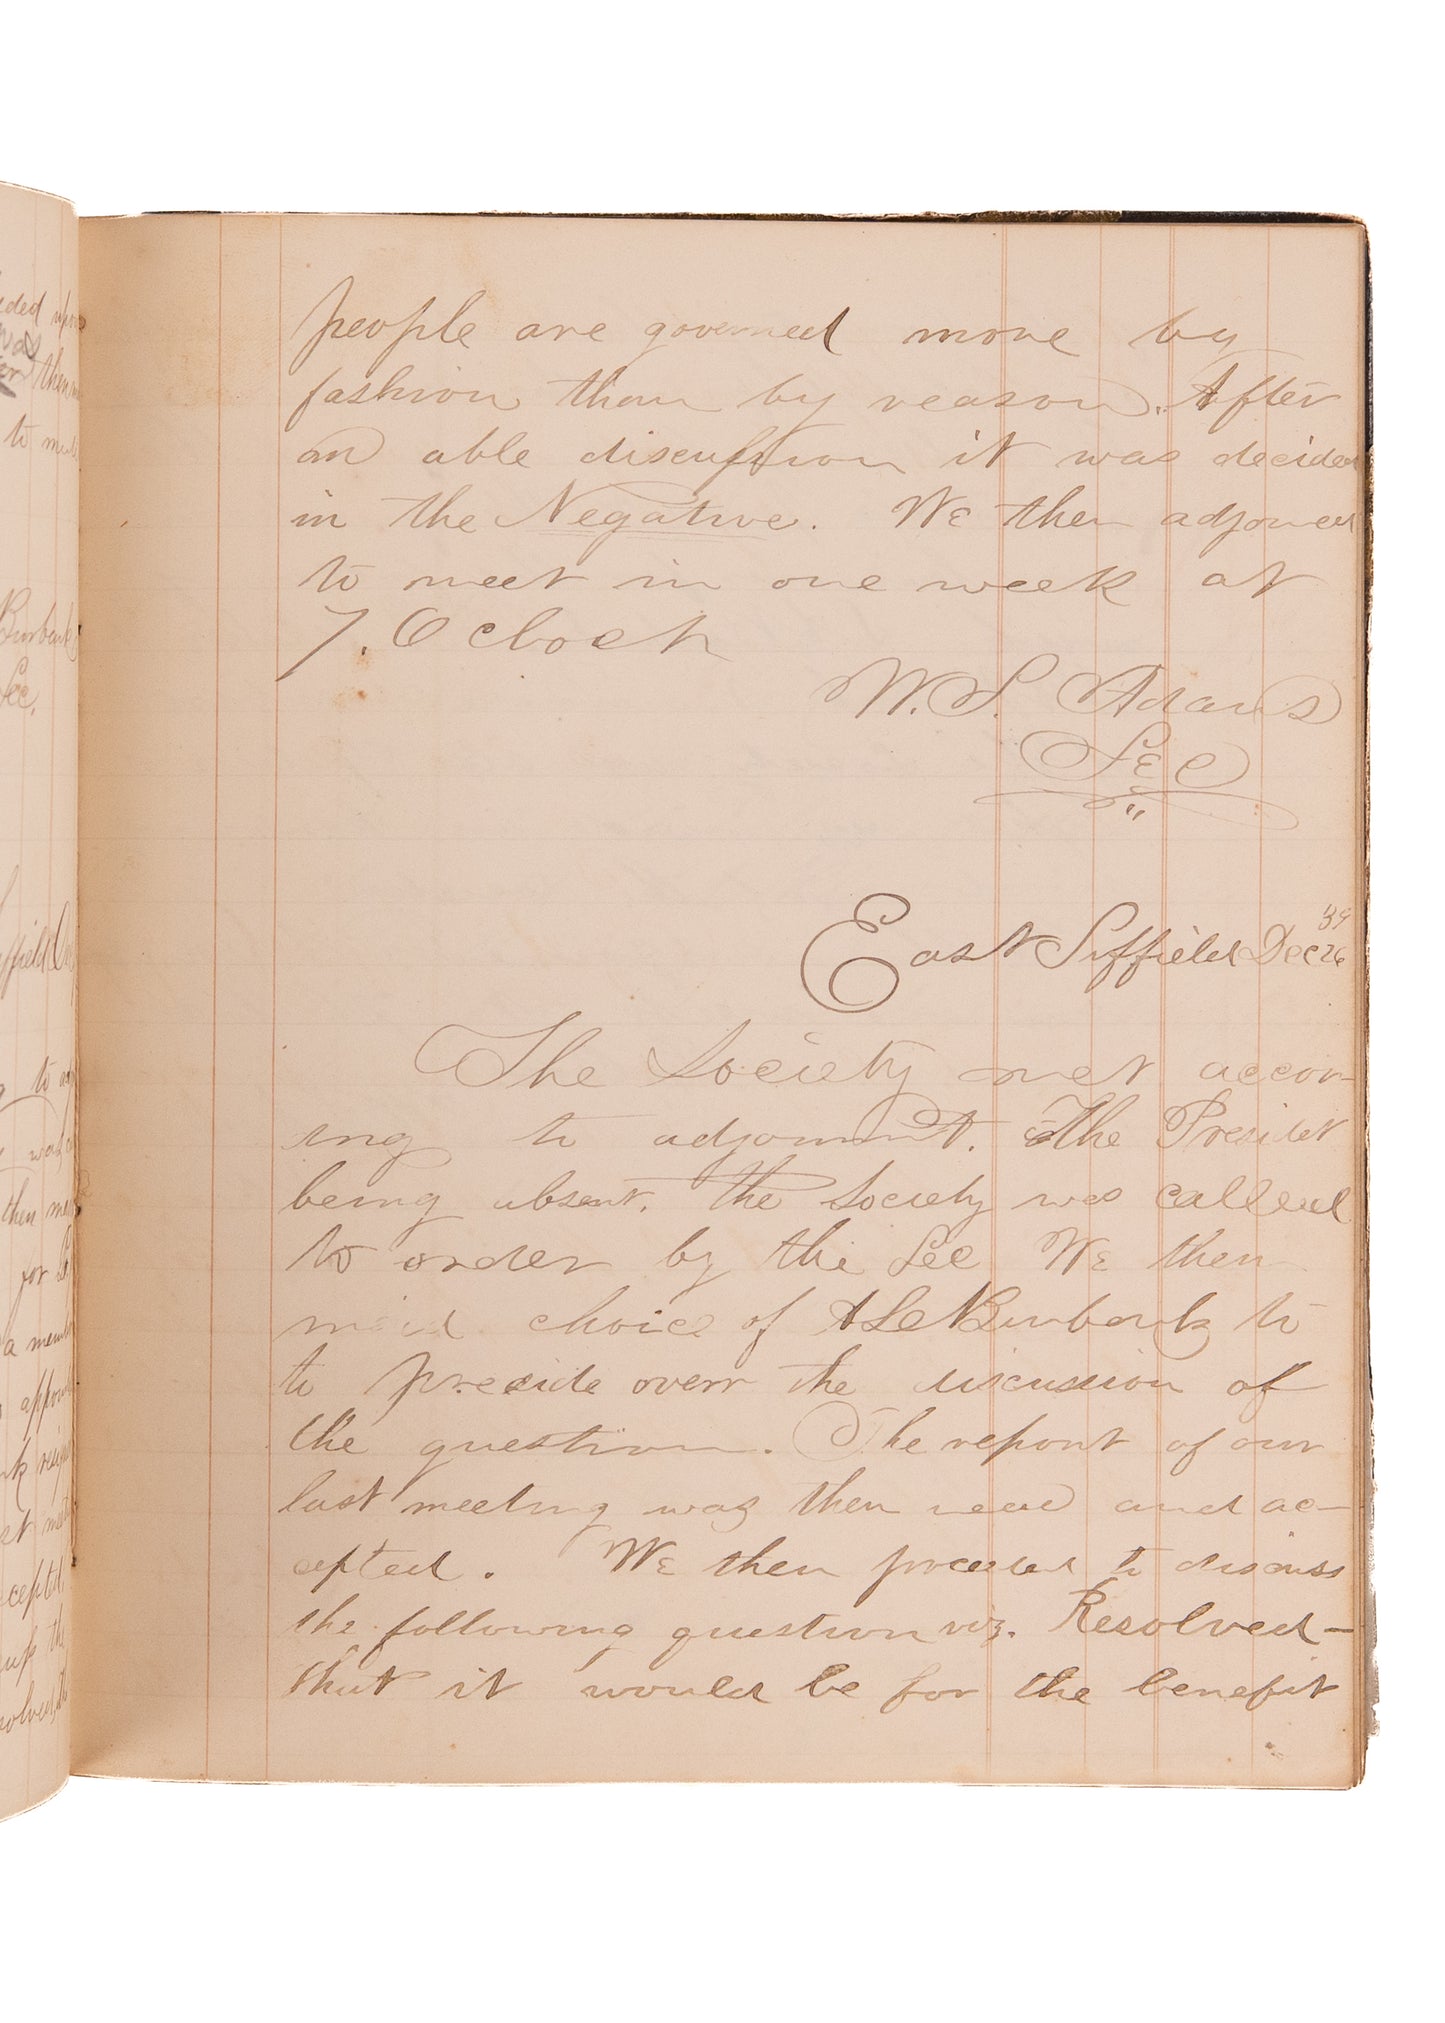 people are governed more by
fashion than by reason. After
an able discussion it was decided
in the Negative. We then adjourned
to meet in one week at
7. O clock
W. S. Adams
Sec
East Suffield Dec 26
The Society met accor-
ing to adjournment. The President
being absent. the Society was called
to order by the Sec We then
maid choice of Burbank to
to preside overr the discussion of
the question. The report of our
last meeting was then read and ac-
cepted. We then proceeded to discuss
the following question viz. Resolved-
that it would be for the benefit